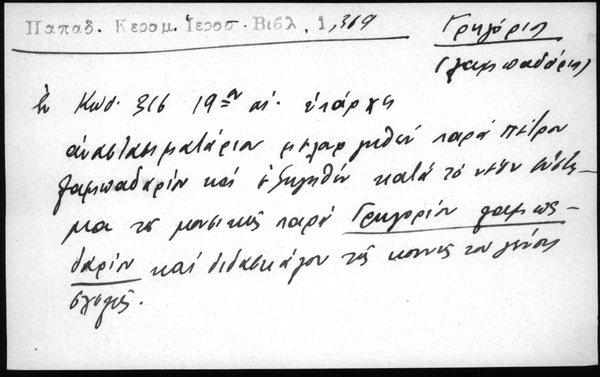 Παπαδ. Κεραμ. Ἱεροσ. Βιβλ. 1, 369
Γρηγόριος
(λαμπαδάριος)
ἐν Κωδ. 316 19ου αἰ. ὑπάρχει
ἀναστασιματάριον μελοργηθὲν παρὰ Πέτρου
λαμπαδαρίου καὶ ἐξηγηθὲν κατὰ τὸ νέον σύστη-
μα τῆς μουσικῆς παρὰ Γρηγορίου λαμπα-
δαρίου καὶ διδασκάλου τῆς κοινῆς τοῦ γένους
σχολῆς.